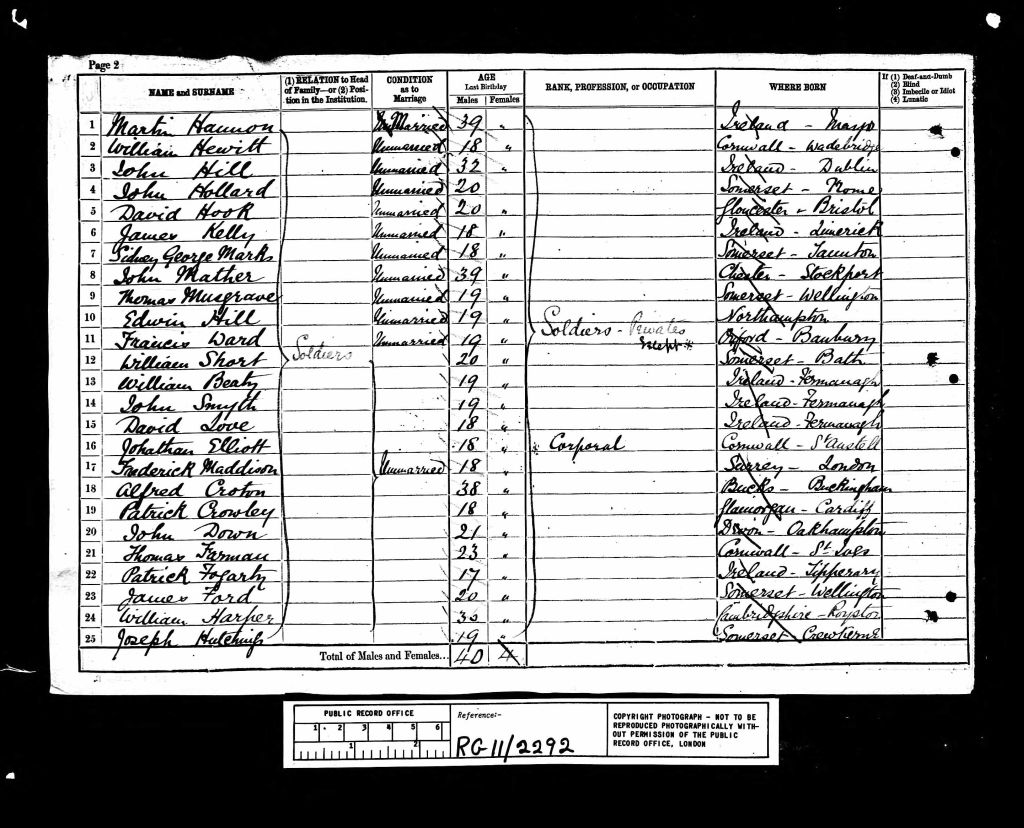 Page 2
NAME and SURNAME
(1) RELATION to Head of Family—or (2) Position in the Institution.
CONDITION as to Marriage
AGE Last Birthday
Males Females
RANK, PROFESSION, or OCCUPATION
WHERE BORN
If (1) Deaf-and-Dumb (2) Blind (3) Imbecile or Idiot (4) Lunatic
1 Martin Hannon UnMarried 39 " Ireland - Mayo
2 William Hewitt Unmarried 18 " Cornwall - Wadebridge
3 John Hill Unmarried 32 " Ireland - Dublin
4 John Hollard Unmarried 20 Somerset -
5 David Hook Unmarried 20 " Gloucester - Bristol
6 James Kelly Unmarried 18 " Ireland - Limerick
7 Sidney George Marks Unmarried 18 " Somerset - Taunton
8 John Mather Unmarried 39 " Chester - Stockport
9 Thomas Musgrave Unmarried 19 " Somerset - Wellington
10 Edwin Hill Unmarried 19 " Soldiers - Privates Northampton
11 Francis Ward Soldiers Unmarried 19 " Except * Oxford - Banbury
12 William Short 20 " Somerset - Bath
13 William Beaty 19 " Ireland - Fermanagh
14 John Smyth 19 " Ireland - Fermanagh
15 David Love 18 " Ireland - Fermanagh
16 Jonathan Elliott 18 " * Corporal Cornwall - St Austell
17 Frederick Maddison Unmarried 18 " Surrey - London
18 Alfred Croton 38 " Bucks - Buckingham
19 Patrick Crowley 18 " Glamorgan - Cardiff
20 John Down 21 " Devon - Oakhampston
21 Thomas Farman 23 " Cornwall - St Ives
22 Patrick Fogarty 17 " Ireland - Tipperary
23 James Ford 20 " Somerset - Wellington
24 William Harper " Cambridgeshire - Royston
25 Joseph Hutchings 19 " Somerset - Crewkerne
Total of Males and Females... 40 4
PUBLIC RECORD OFFICE
1 2 3 4 5 6
1 2
Reference:-
RG 11/2292
COPYRIGHT PHOTOGRAPH - NOT TO BE
REPRODUCED PHOTOGRAPHICALLY WITH-
OUT PERMISSION OF THE PUBLIC
RECORD OFFICE, LONDON